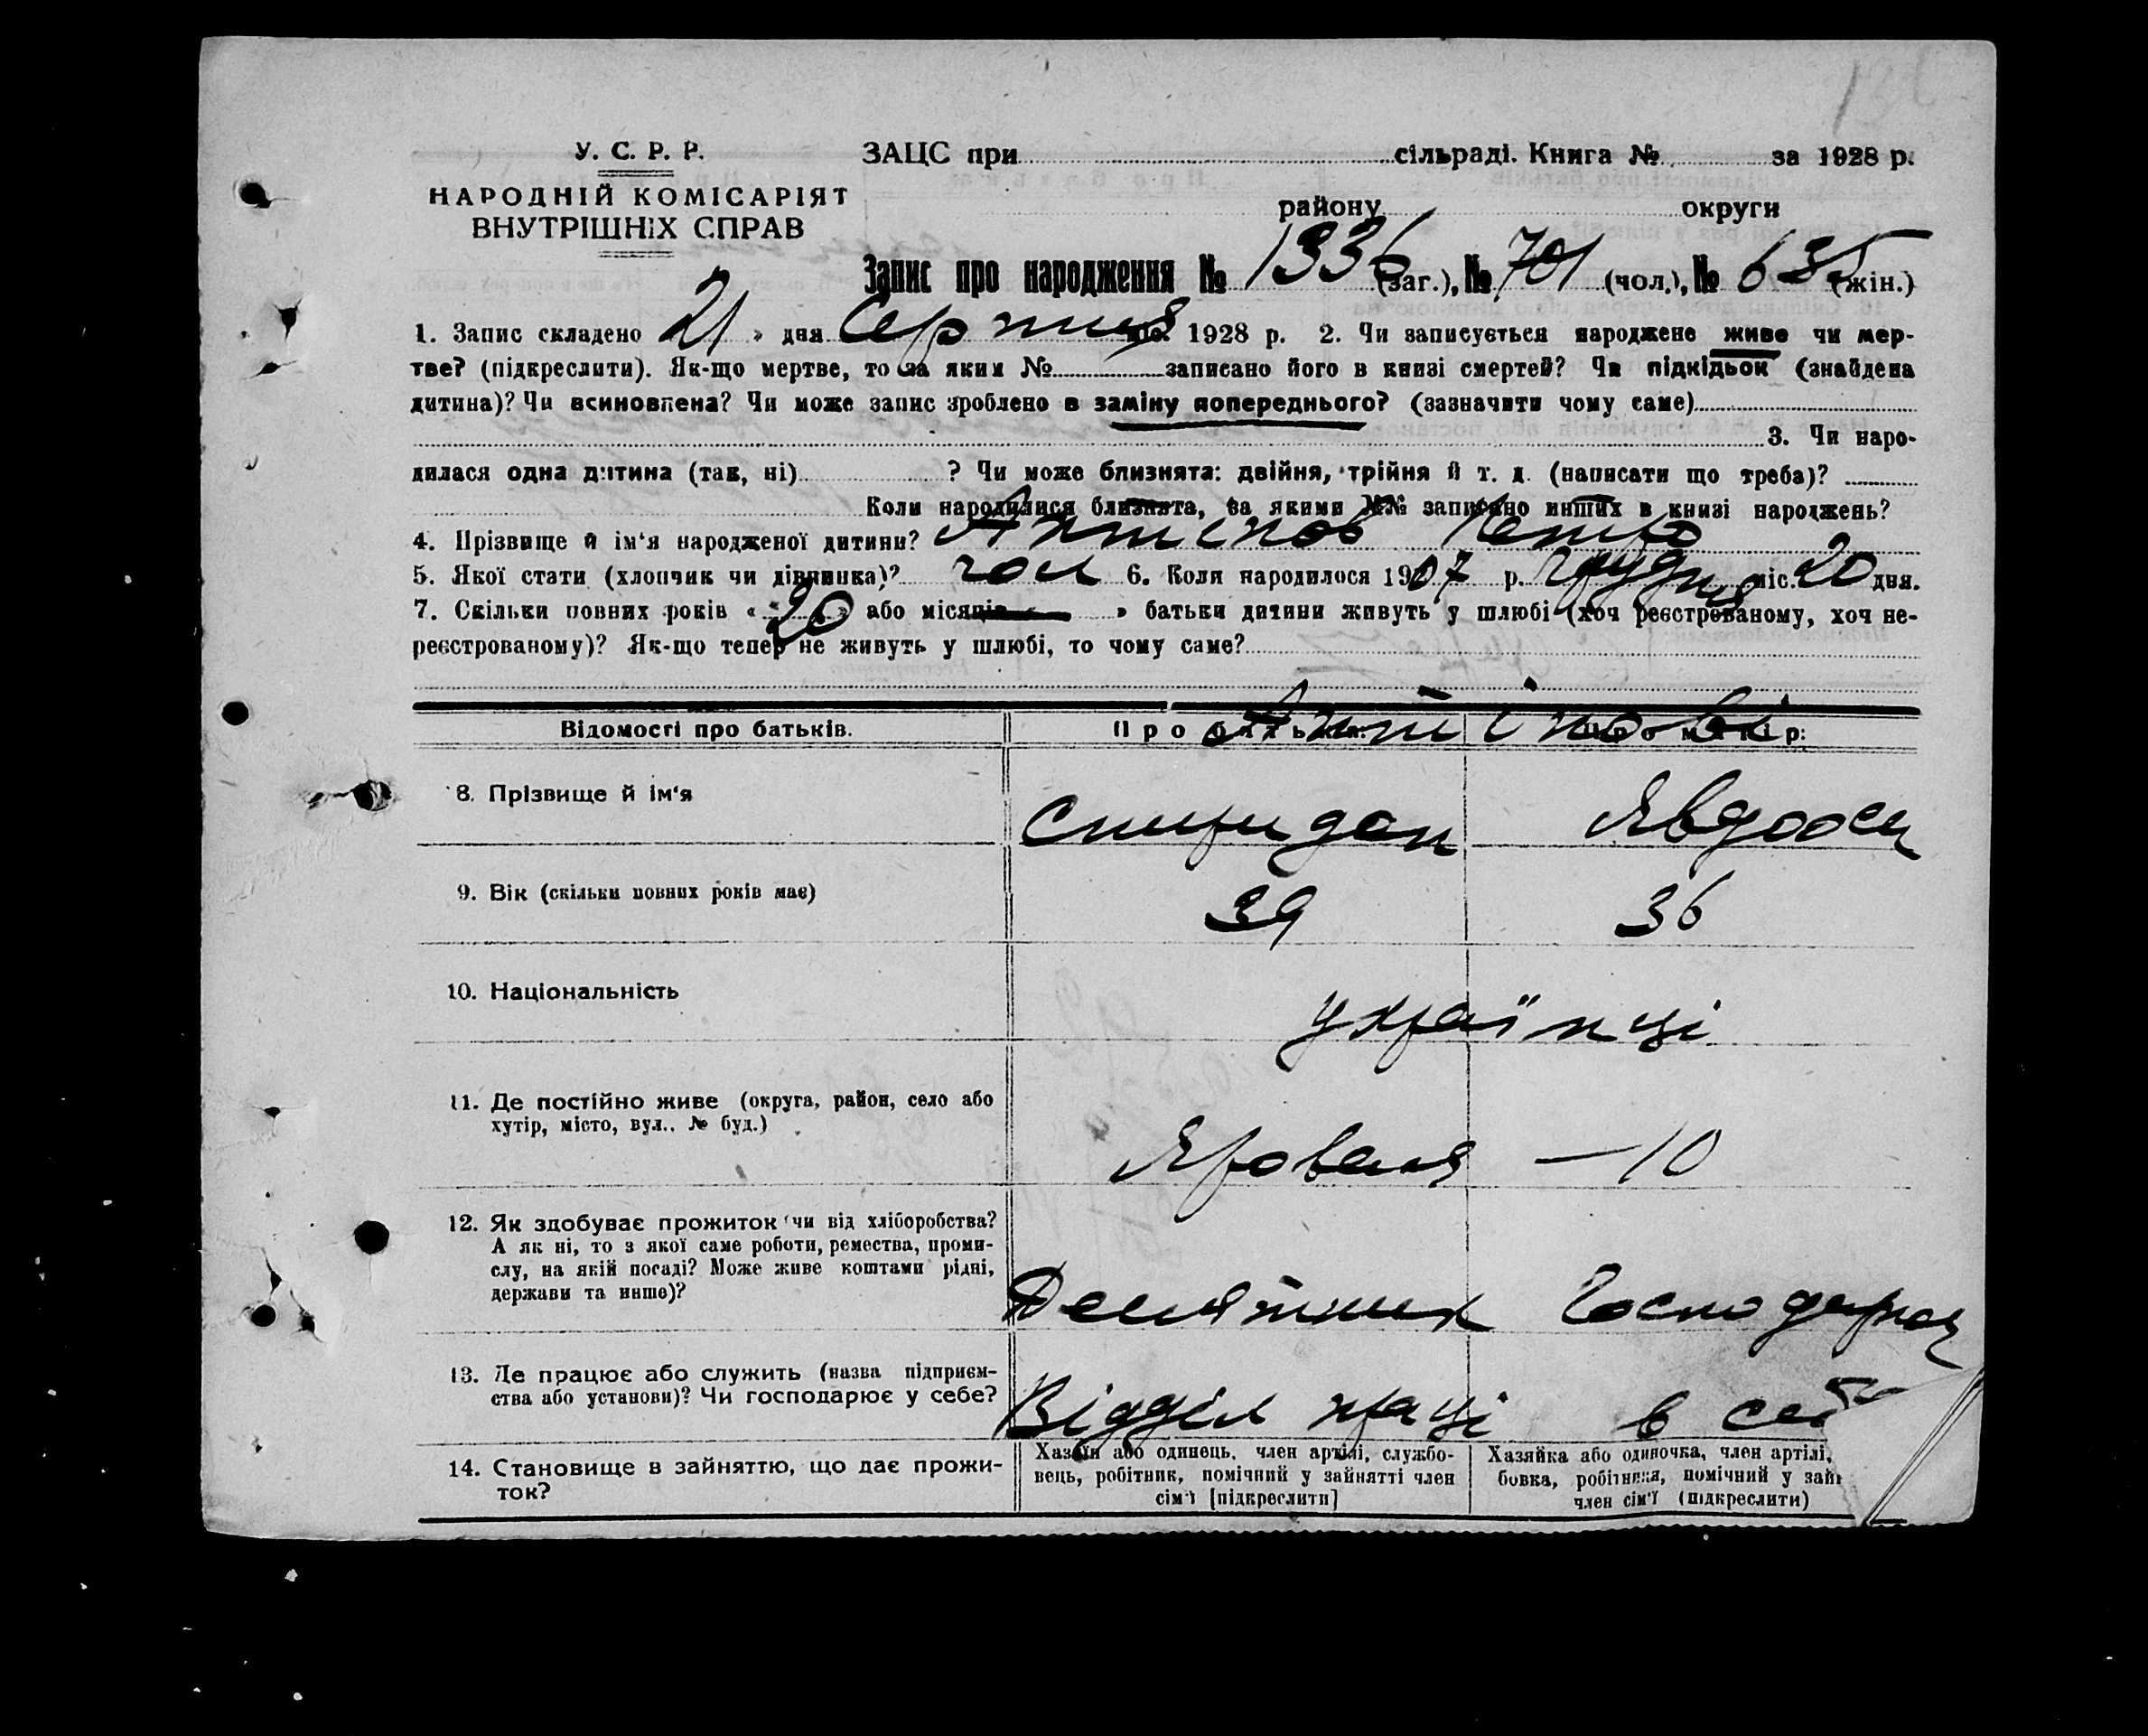 У. С. Р. Р.
НАРОДНІЙ КОМІСАРІЯТ
ВНУТРІШНІХ СПРАВ
ЗАЦС при сільраді. Книга № за 1928 р.
району округи
Запис про народження № 1336 (заг.), № 701 (чол.), № 635 (жін.)
1. Запис складено 21 » дня Серпня міс. 1928 р. 2. Чи записується народжене живе чи мер-
тве? (підкреслити). Як-що мертве, то за яким № записано його в книзі смертей? Чи підкідьок (знайдена
дитина)? Чи всиновлена? Чи може запис зроблено в заміну попереднього? (зазначити чому саме)
3. Чи наро-
дилася одна дитина (так, ні) ? Чи може близнята: двійня, трійня й т. д. (написати що треба)?
Коли народилися близнята, за якими №№ записано инших в книзі народжень?
4. Прізвище й ім'я народженої дитини? Антінов
5. Якої стати (хлопчик чи дівчинка)? чол 6. Коли народилося 1907 р. Грудня міс. 20 дня.
7. Скільки повних років « 20 » або місяців « » батьки дитини живуть у шлюбі (хоч реєстрованому, хоч не-
реєстрованому)? Як-що тепер не живуть у шлюбі, то чому саме?
Відомості про батьків. Про батька: Про матір:
Антінові
8. Прізвище й ім'я Спиридон Явдося
9. Вік (скільки повних років має) 39 36
10. Національність Українці
11. Де постійно живе (округа, район, село або
хутір, місто, вул., № буд.)
Яровая — 10
12. Як здобуває прожиток чи від хліборобства?
А як ні, то з якої саме роботи, ремества, проми-
слу, на якій посаді? Може живе коштами рідні,
держави та инше)?
Десятник Господарка
13. Де працює або служить (назва підприєм-
ства або установи)? Чи господарює у себе?
Відділ праці в себе
14. Становище в зайняттю, що дає прожи-
ток?
Хазяїн або одинець, член артілі, службо-
вець, робітник, помічний у зайнятті член
сім'ї [підкреслити]
Хазяйка або одиночка, член артілі,
бовка, робітниця, помічний у зайн
член сім'ї (підкреслити)